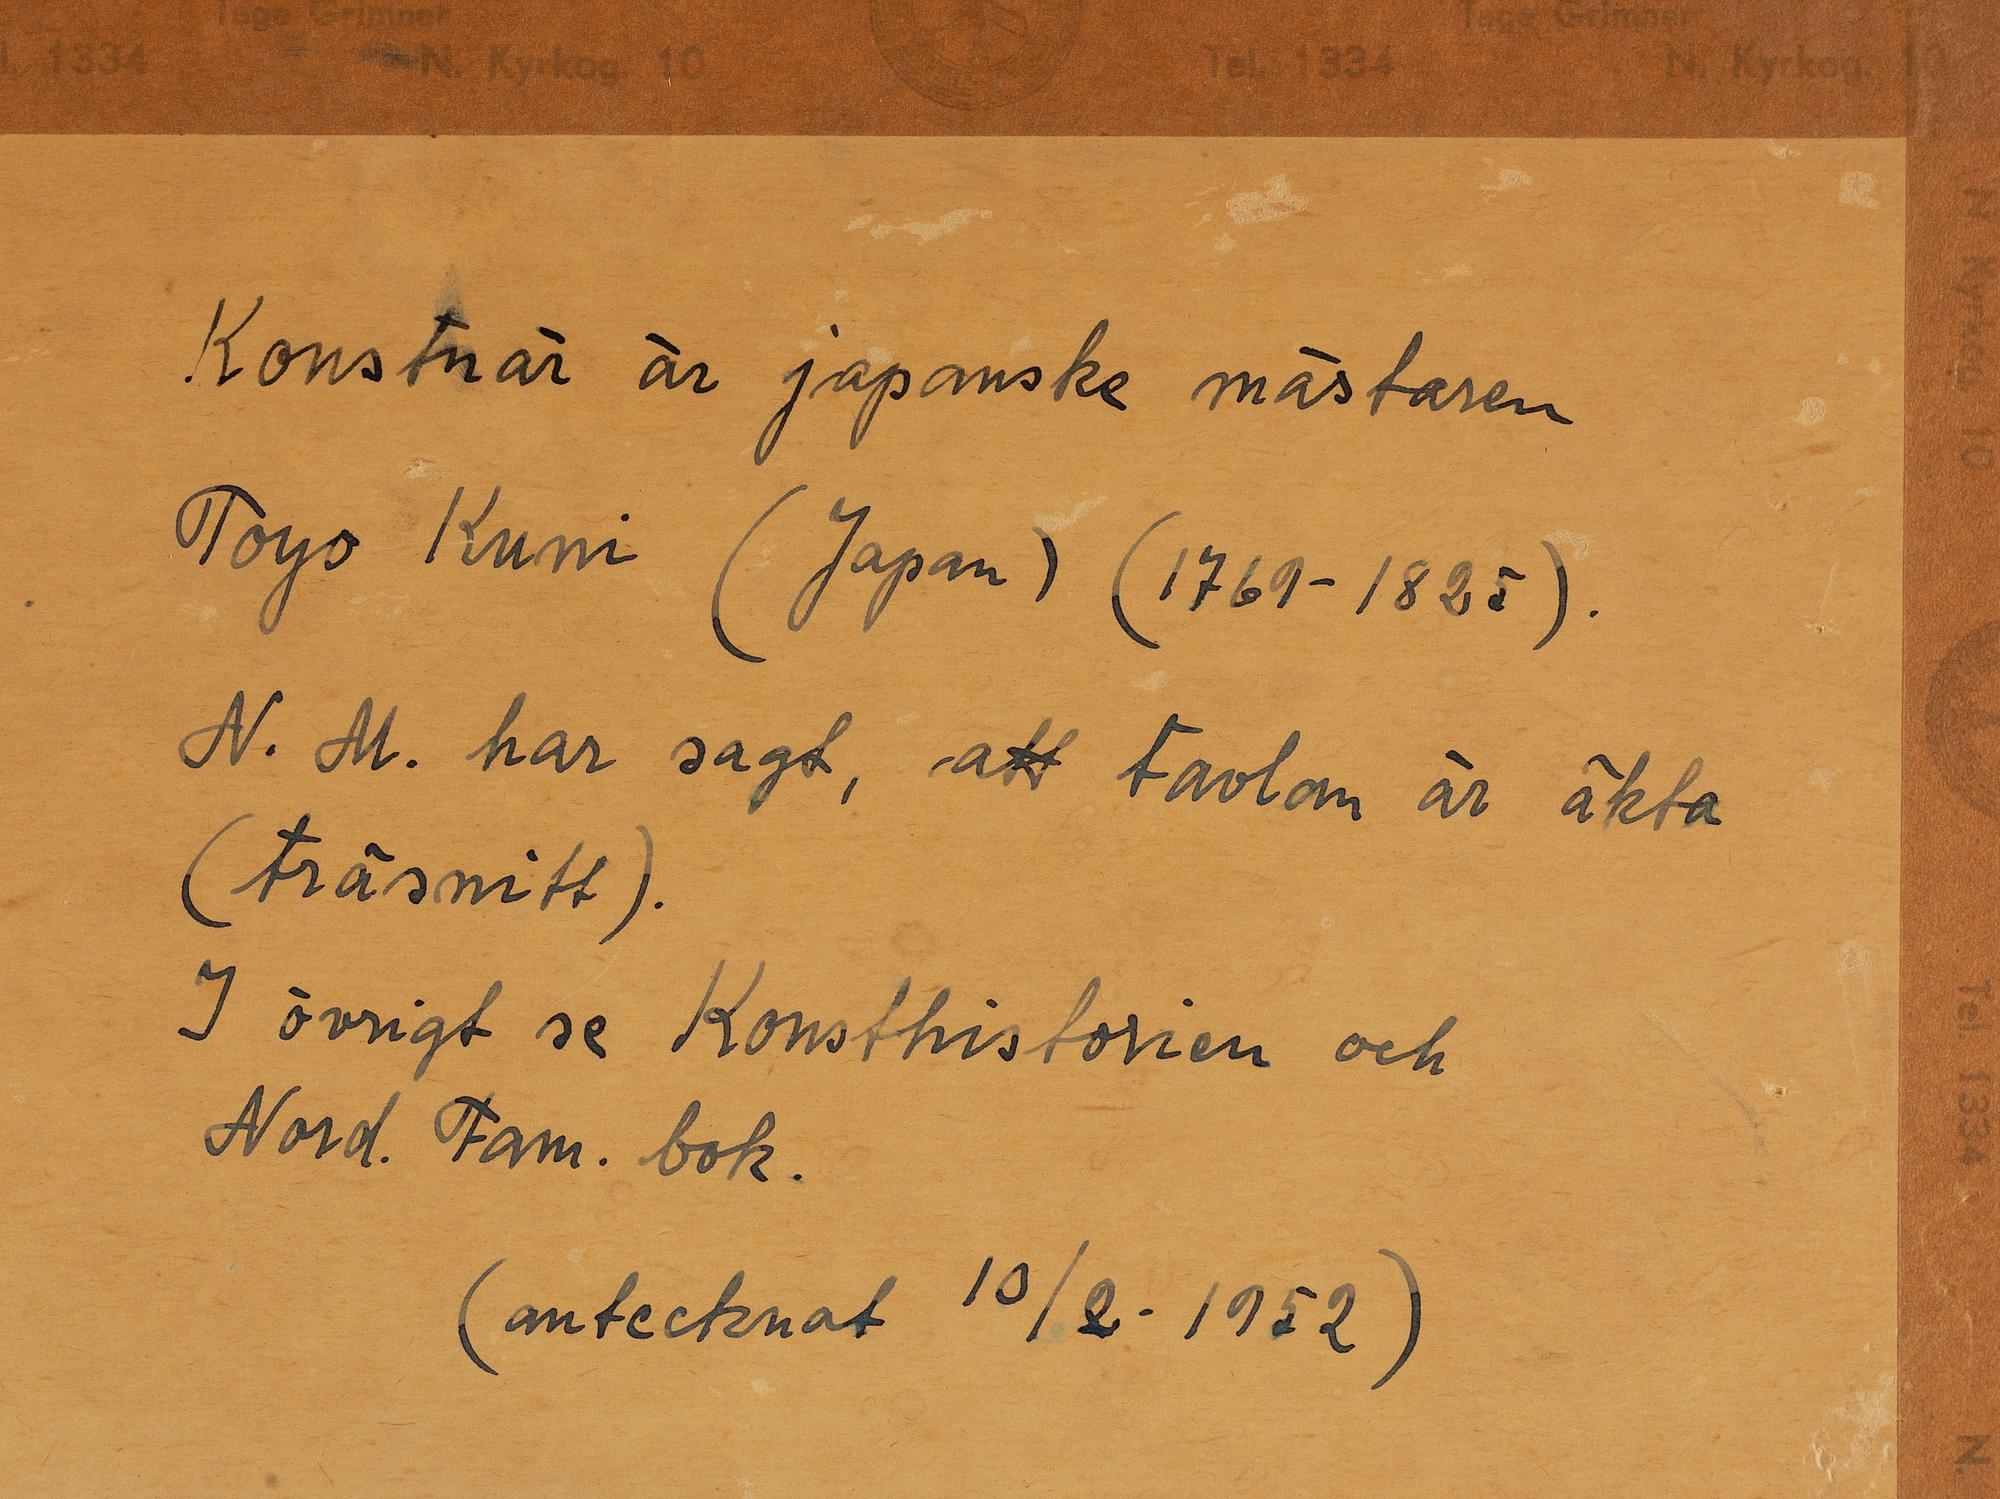 Tage Grimner
Tage Grimner
l. 1334
N. Kyrkog. 10
Tel. 1334
N. Kyrkog. 10
Konstnär är japanske mästaren
Toyo Kuni (Japan) (1769-1825).
N. M. har sagt, att tavlan är äkta
(träsnitt).
I övrigt se Konsthistorien och
Nord. Fam. bok.
(antecknat 10/2 - 1952)
N. Kyrkog. 10
Tel. 1334
N.